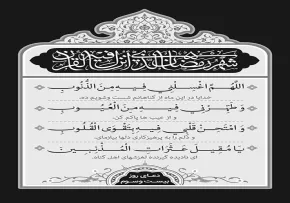 شهر رمضان الذی انزل فیه القرآن
اَللّهُمَّ اغْسِلْنی فیهِ مِنَ الذُّنُوبِ
خدایا در این ماه از گناهانم شست وشویم ده،
وَ طَهِّرْنی فیهِ مِنَ الْعُیُوبِ
و از عیب ها پاکم کن،
وَ امْتَحِنْ قَلْبی فیهِ بِتَقْوَی الْقُلُوبِ
و دلم را به پرهیزکاری دلها بیازمای،
یا مُقیلَ عَثَراتِ الْمُذْنِبینَ
ای نادیده گیرنده لغزشهای اهل گناه.
دعای روز
بیست و سوم